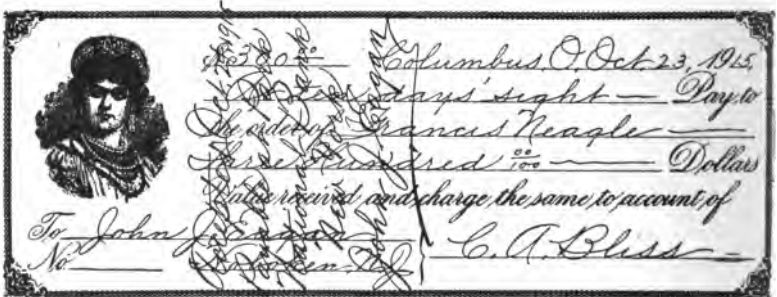 $300 00/100 Columbus, O. Oct. 23, 1915.
days' sight Pay to
the order of Francis Neagle
Three Hundred 00/100 Dollars
Value received and charge the same to account of
To John J. Cogan
No Camden, N.J.
C. A. Bliss
Accepted Oct.
Payable at
National Bank
New York
John J. Cogan